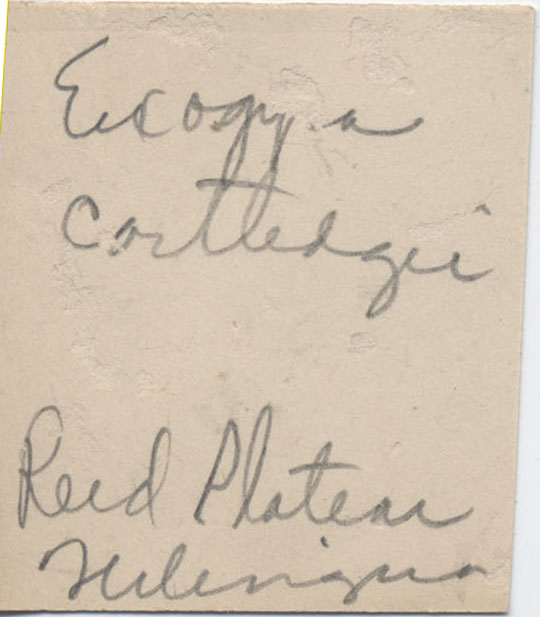 Exogyra
cartledgei
Reed Plateau
Terlingua